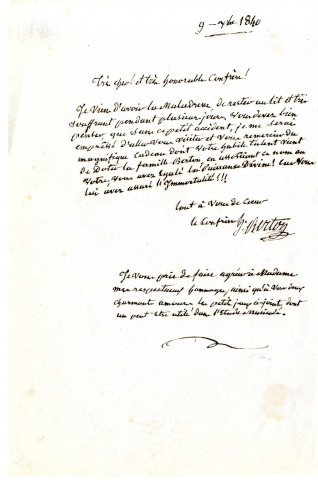 9 - Xbre 1840
Très cher! et très honorable Confrère!
Je Vien d'avoir la Maladresse de rester au lit et très
souffrant pendant plusieurs jours. Vous devez bien
penser que sans ce petit accident, je me serai
empréssé d'aller Vous Visiter et Vous remercier du
magnifique cadeau dont Votre habile talent vient
de Doter la famille Berton, en associant ce nom au
Votre Vous avez égalé la Puissance Divine! Car Vous
lui avez assuré l'Immortalité!!!
tout à Vous de Coeur
le Confrère H. Berton
Je Vous prie de faire agréer à Madame
mes respectueux hommages, ainsi qu'à Vos deux
charmants amours le petit jeu ci-joint, dont
un peut être utile dans l'Etude Musicale.